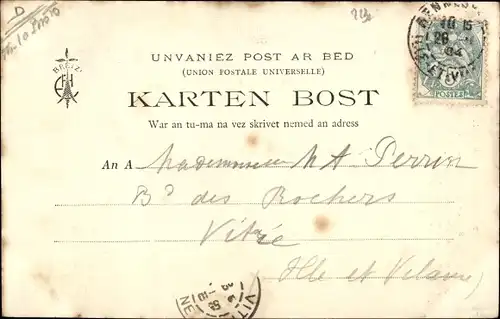 D
BREIZ
UNVANIEZ POST AR BED
(UNION POSTALE UNIVERSELLE)
KARTEN BOST
War an tu-ma na vez skrivet nemed an adress
An A Mademoiselle M A Perrin
Bd des Rochers
Vitré
(Ille et Vilaine)
RENNES
POSTES